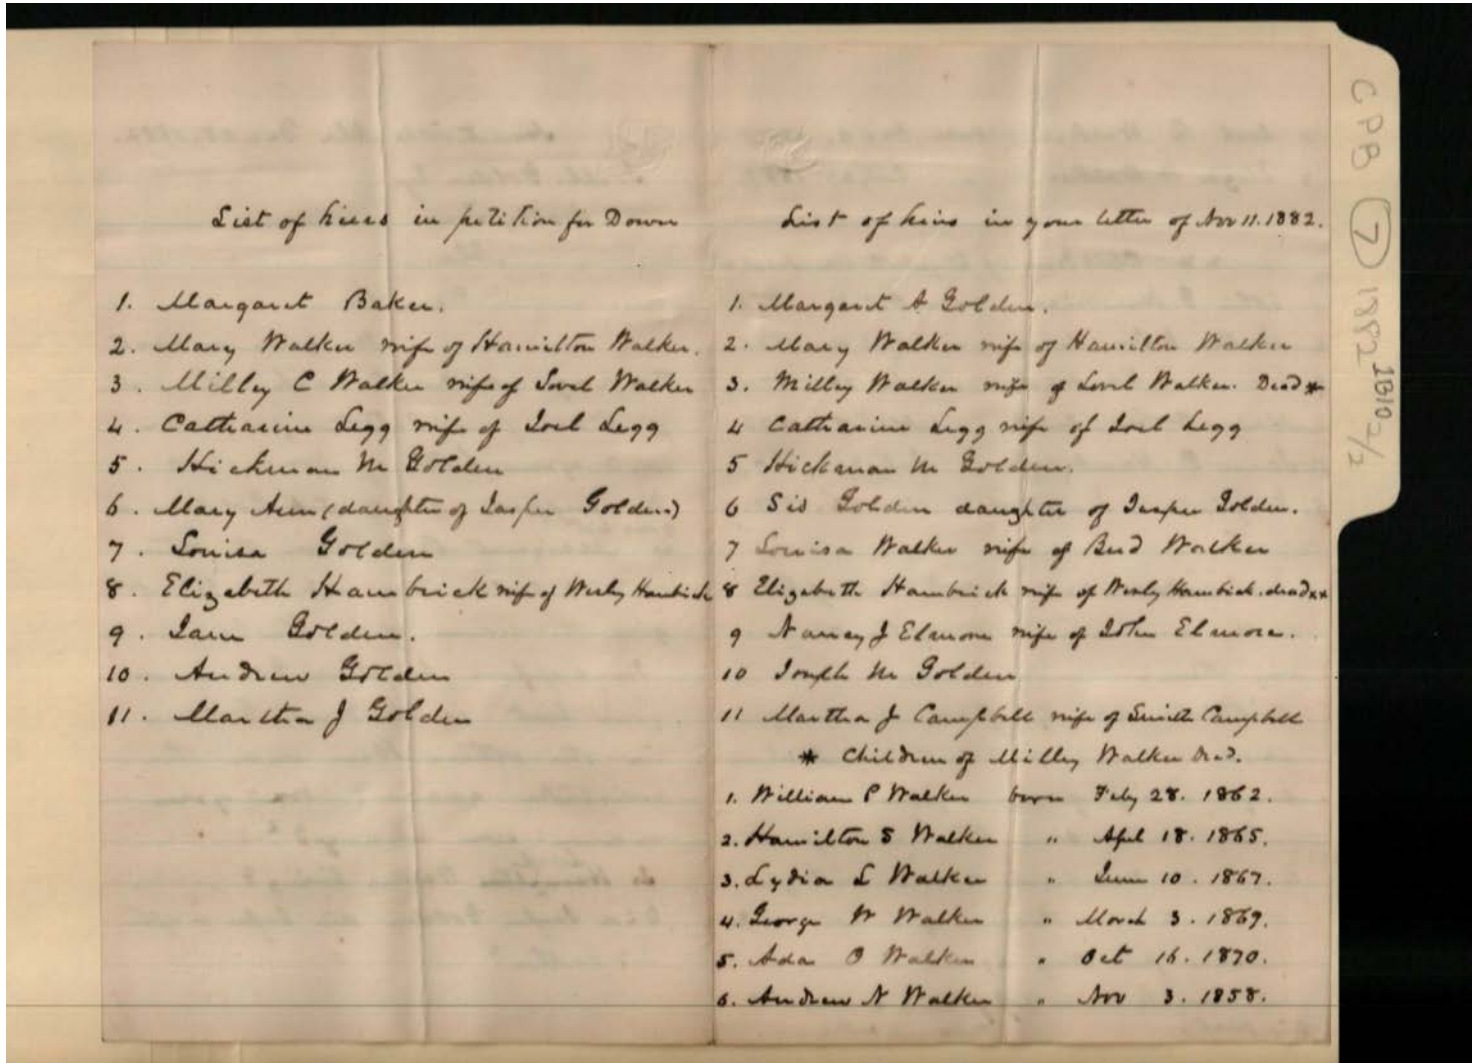 List of heirs in petition for Dower
1. Margaret Baker.
2. Mary Walker wife of Hamilton Walker.
3. Milley C Walker wife of Lovel Walker
4. Catharine Legg wife of Joel Legg
5. Hickman M Golden
6. Mary Ann (daughter of Jasper Golden)
7. Louisa Golden
8. Elizabeth Hambrick wife of Wesly Hambrick
9. Jane Golden.
10. Andrew Golden
11. Martha J Golden
List of heirs in your letter of Nov 11. 1882.
1. Margaret A Golden.
2. Mary Walker wife of Hamilton Walker
3. Milley Walker wife of Lovel Walker. Dead *
4 Catharine Legg wife of Joel Legg
5 Hickman M Golden.
6 Sis Golden daughter of Jasper Golden.
7 Louisa Walker wife of Bud Walker
8 Elizabeth Hambrick wife of Wesly Hambrick. dead **
9 Nancy J Elmore wife of John Elmore.
10 Joseph M Golden
11 Martha J Campbell wife of Smith Campbell
* Children of Milley Walker Dead.
1. William P Walker born Feby 28. 1862.
2. Hamilton S Walker " April 18. 1865.
3. Lydia L Walker " June 10. 1867.
4. George W Walker " March 3. 1869.
5. Ada O Walker " Oct 16. 1870.
6. Andrew N Walker " Nov 3. 1858.
CPB 7 1882 1B10 2/2